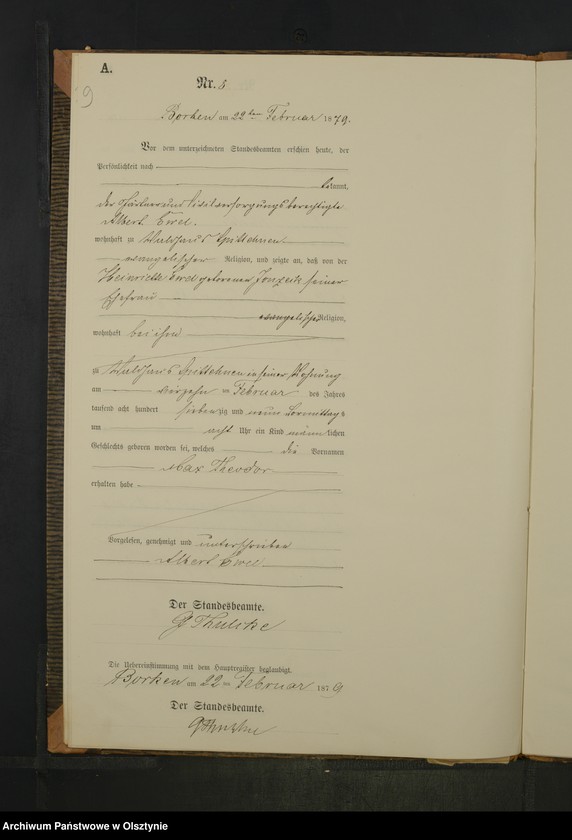 A.
9
Nr. 8
Borken am 22ten Februar 1879.
Vor dem unterzeichneten Standesbeamten erschien heute, der
Persönlichkeit nach
bekannt,
der Gärtner und Civilversorgungsberechtigte
Albert
wohnhaft zu Waldhaus
evangelischer Religion, und zeigte an, daß von der
Heinriette geborenen seiner
Ehefrau
evangelischer Religion,
wohnhaft bei ihm
zu Waldhaus in seiner Wohnung
am vierzehn ten Februar des Jahres
tausend acht hundert siebenzig und neun Vormittags
um acht Uhr ein Kind männlichen
Geschlechts geboren worden sei, welches die Vornamen
Max Theodor
erhalten habe
Vorgelesen, genehmigt und unterschrieben
Albert
Der Standesbeamte.
Die Uebereinstimmung mit dem Hauptregister beglaubigt.
Borken am 22 ten Februar 1879
Der Standesbeamte.
Archiwum Państwowe w Olsztynie